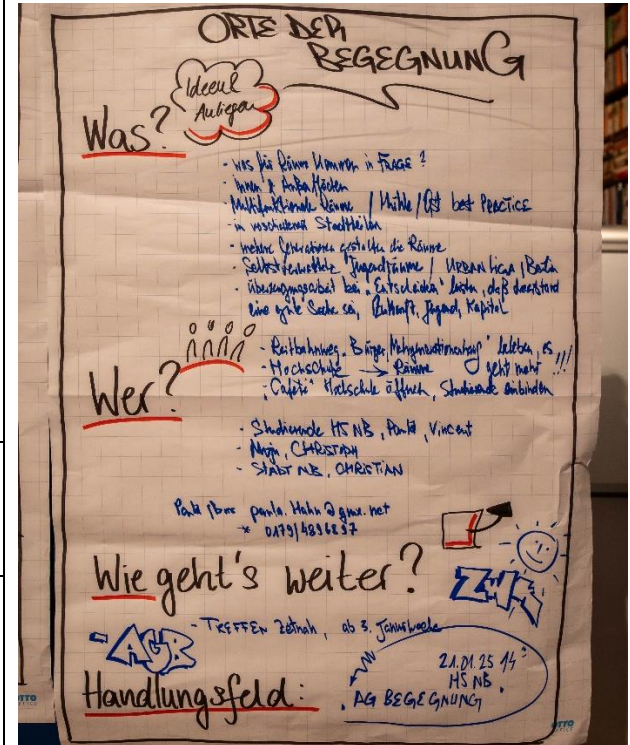 ORTE DER
BEGEGNUNG
Ideen &
Anliegen
Was?
- was für Räume kommen in FRAGE?
- Innen & Außenflächen
- Multifunktionale Räume / Mühle / best PRACTICE
- in verschiedenen Stadtteilen
- mehrere Generationen gestalten die Räume
- Selbstverwaltete Jugendräume / URBAN / Berlin
- überzeugungsarbeit bei "Entscheidern" leisten, daß
eine gute Sache sei, Zukunft, Jugend, Kapital
- Reitbahnweg, Bürger, beleben, es
- Hochschule → Räume geht mehr !!!
- "Cafete" Hochschule öffnen, Studierende einbinden
Wer?
- Studierende HS NB, Vincent
- CHRISTOPH
- STADT NB, CHRISTIAN
paula.Hahn@gmx.net
* 0179/4896897
Wie geht's weiter?
- TREFFEN zeitnah, ab 3. Januarwoche
- AGB
21.01.25 14:
HS NB
AG BEGEGNUNG
Handlungsfeld:
OTTO
OTTO